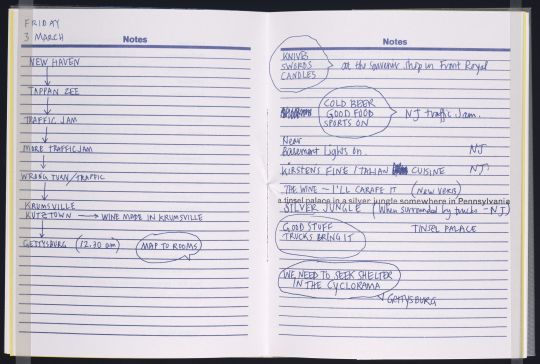 FRIDAY
3 MARCH
Notes
NEW HAVEN
TAPPAN ZEE
TRAFFIC JAM
MORE TRAFFIC JAM
WRONG TURN/TRAFFIC
KRUMSVILLE
KUTZTOWN → WINE MADE IN KRUMSVILLE
GETTYSBURG (12.30 am) MAP TO ROOMS
Notes
KNIVES
SWORDS at the souvenir shop in Front Royal
CANDLES
COLD BEER
GOOD FOOD NJ traffic Jam.
SPORTS ON
Near
Basement Lights on. NJ
KIRSTEN'S FINE ITALIAN CUISINE NJ
THE WINE – I'LL CARAFE IT (New Yorks)
a tinsel palace in a silver jungle somewhere in Pennsylvania
SILVER JUNGLE (When surrounded by trucks - NJ)
GOOD STUFF TINSEL PALACE
TRUCKS BRING IT
WE NEED TO SEEK SHELTER
IN THE CYCLORAMA
GETTYSBURG